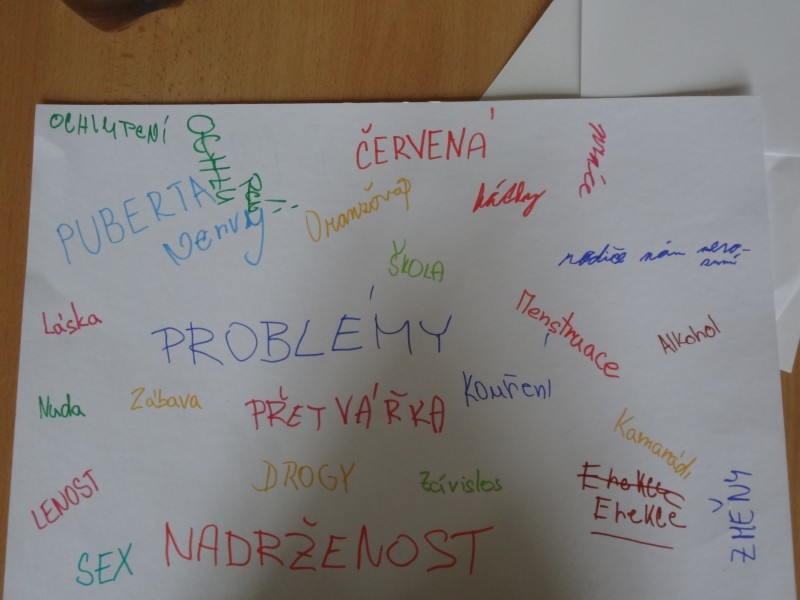 OCHLUPENÍ
ČERVENÁ
PUBERTA
Nervy
Oranžová
ŠKOLA
rodiče nám nero-
zumí
Láska
PROBLÉMY
Menstruace
Alkohol
Nuda
Zábava
PŘETVÁŘKA
KOUŘENÍ
Kamarádi
LENOST
DROGY
Závislos
Erekce
Erekce
ZMĚNY
SEX
NADRŽENOST